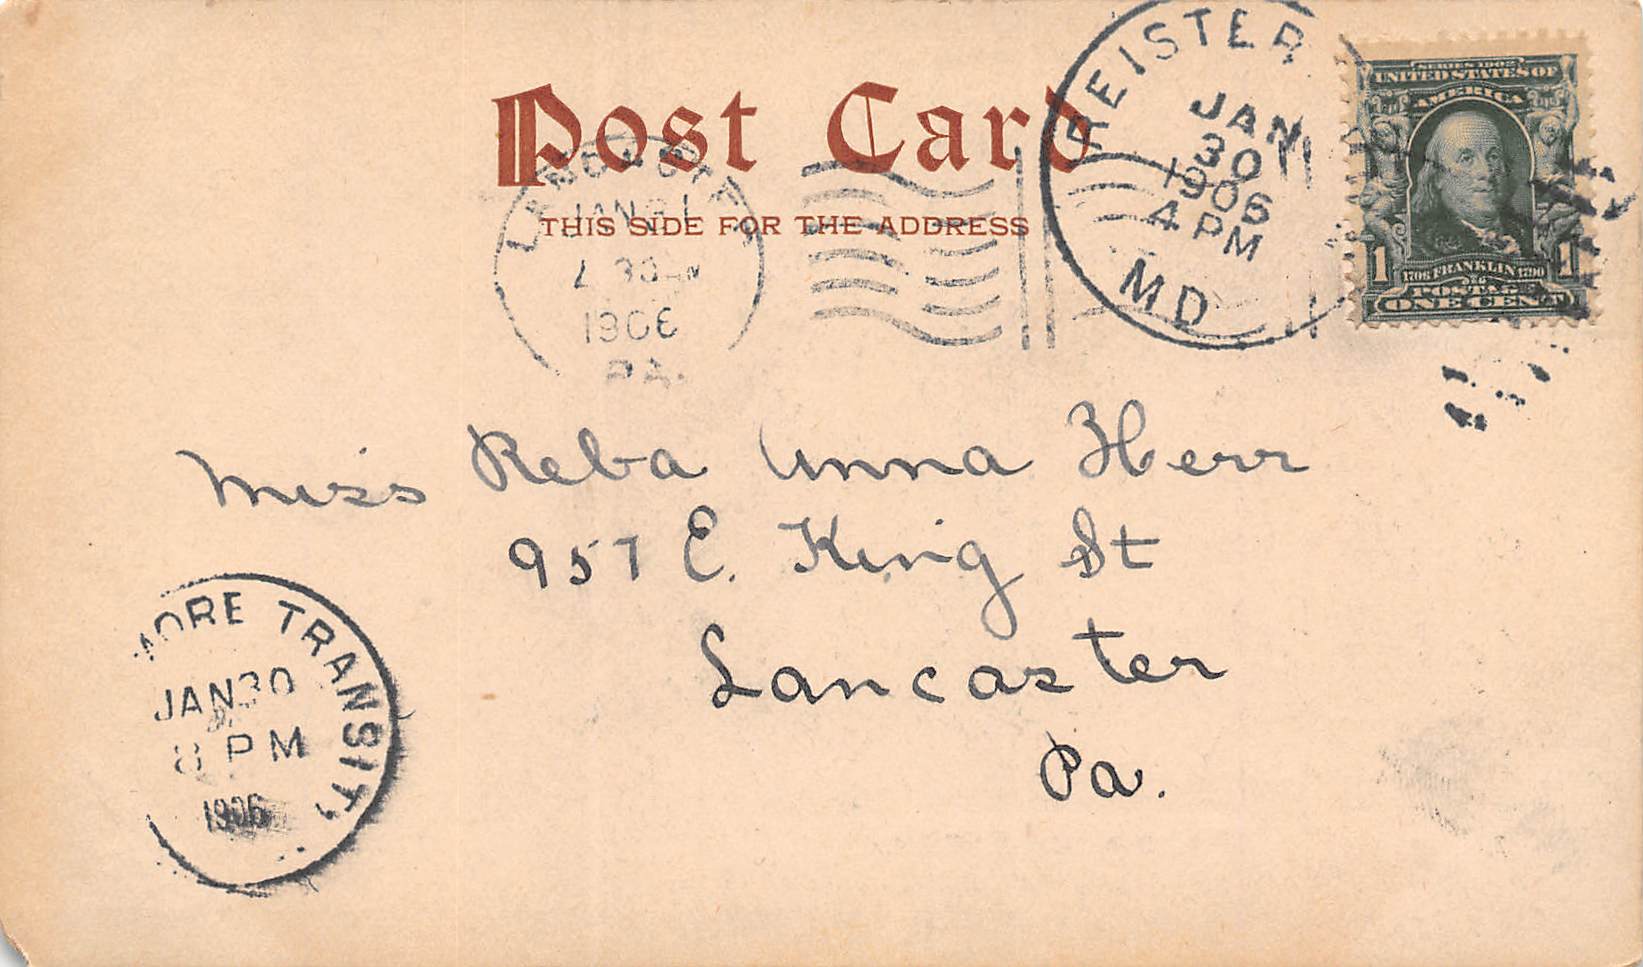 Post Card
THIS SIDE FOR THE ADDRESS
REISTER
JAN
30
1906
4 PM
MD
SERIES 1902
UNITED STATES OF
AMERICA
1 1
1706 FRANKLIN 1790
POSTAGE
ONE CENT
JAN 31
1906
PA.
Miss Reba Anna Herr
957 E. King St
Lancaster
Pa.
MORE TRANSIT
JAN 30
8 PM
1906